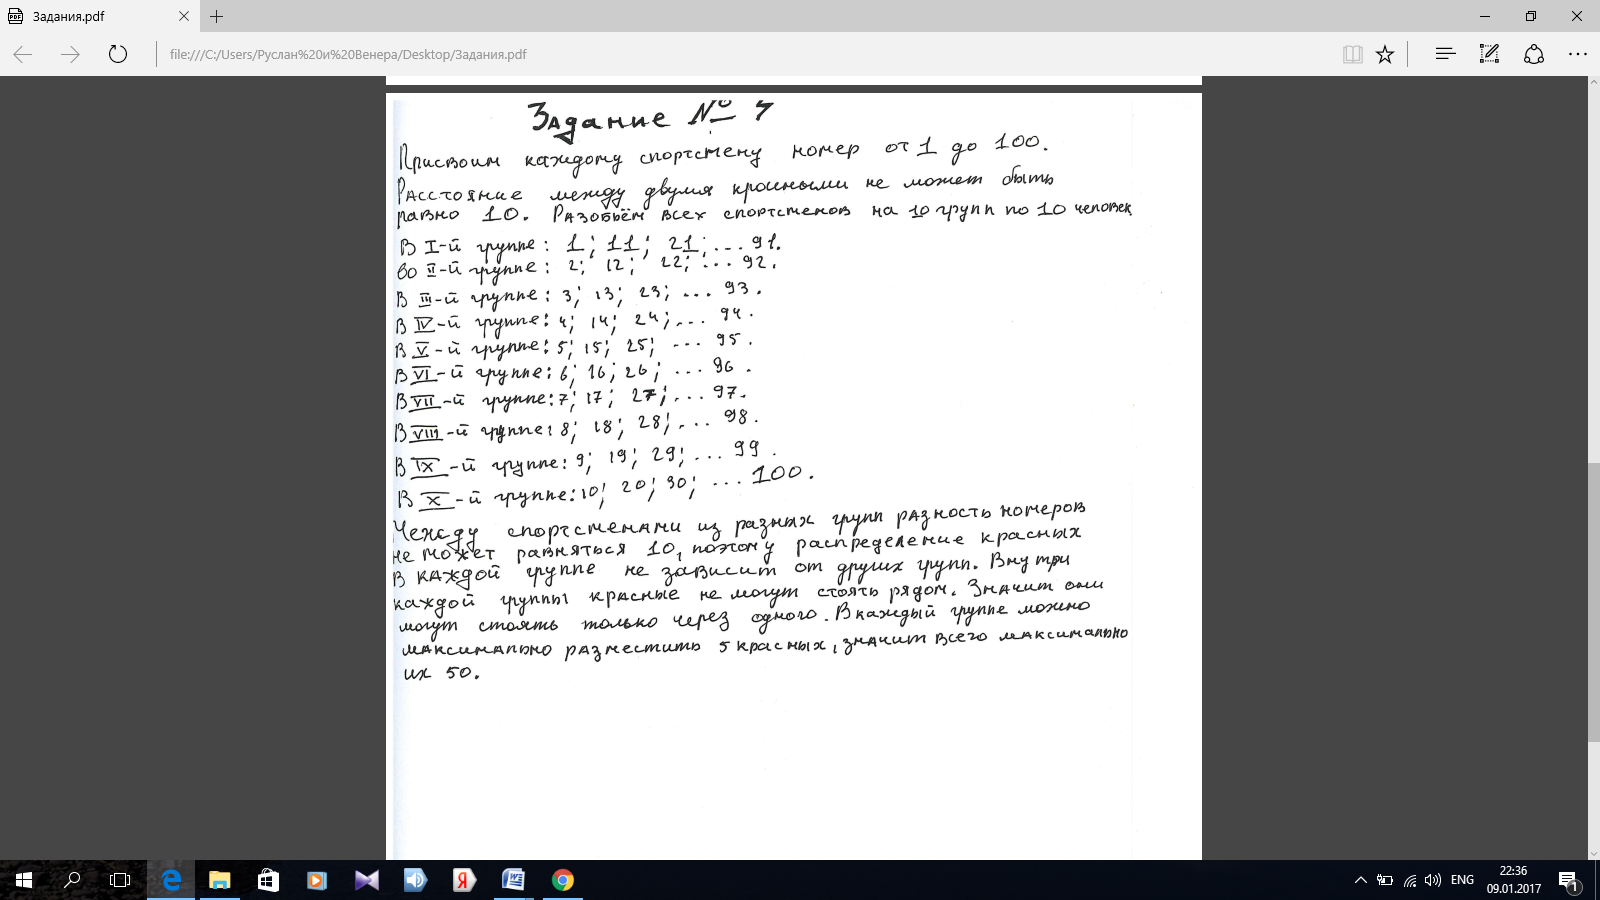 Задания.pdf
file:///C:/Users/Руслан%20и%20Венера/Desktop/Задания.pdf
Задание №
Присвоим каждому спортсмену номер от 1 до 100.
Расстояние между двумя красными не может быть
равно 10. Разобьём всех спортсменов на 10 групп по 10 человек
В I-й группе: 1; 11; 21; ... 91.
во II-й группе: 2; 12; 22; ... 92.
В III-й группе: 3; 13; 23; ... 93.
В IV-й группе: 4; 14; 24; ... 94.
В V-й группе: 5; 15; 25; ... 95.
В VI-й группе: 6; 16; 26; ... 96.
В VII-й группе: 7; 17; 27; ... 97.
В VIII-й группе: 8; 18; 28; ... 98.
В IX-й группе: 9; 19; 29; ... 99.
В X-й группе: 10; 20; 30; ... 100.
Между спортсменами из разных групп разность номеров
не может равняться 10, поэтому распределение красных
в каждой группе не зависит от других групп. Внутри
каждой группы красные не могут стоять рядом. Значит они
могут стоять только через одного. В каждый группе можно
максимально разместить 5 красных, значит всего максимально
их 50.
ENG
22:36
09.01.2017
1